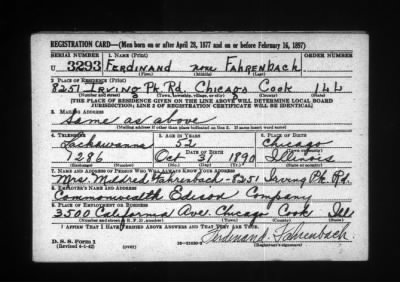 REGISTRATION CARD—(Men born on or after April 28, 1877 and on or before February 16, 1897)
SERIAL NUMBER 1. NAME (Print) ORDER NUMBER
U 3293 FERDINAND none FAHRENBACH
(First) (Middle) (Last)
2. PLACE OF RESIDENCE (Print)
8251 IRVING Pk. Rd. Chicago Cook Ill
(Number and street) (Town, township, village, or city) (County) (State)
[THE PLACE OF RESIDENCE GIVEN ON THE LINE ABOVE WILL DETERMINE LOCAL BOARD
JURISDICTION; LINE 2 OF REGISTRATION CERTIFICATE WILL BE IDENTICAL]
3. MAILING ADDRESS
Same as above
[Mailing address if other than place indicated on line 2. If same insert word same]
4. TELEPHONE 5. AGE IN YEARS 6. PLACE OF BIRTH
Lackawanna 52 Chicago
DATE OF BIRTH (Town or county)
7286 Oct 31 1890 Illinois
(Exchange) (Number) (Mo.) (Day) (Yr.) (State or country)
7. NAME AND ADDRESS OF PERSON WHO WILL ALWAYS KNOW YOUR ADDRESS
Mrs. Mildred Fahrenbach - 8251 Irving Pk. Rd.
8. EMPLOYER'S NAME AND ADDRESS
Commonwealth Edison Company
9. PLACE OF EMPLOYMENT OR BUSINESS
3500 California Ave. Chicago Cook Ill
(Number and street or R. F. D. number) (Town) (County) (State)
I AFFIRM THAT I HAVE VERIFIED ABOVE ANSWERS AND THAT THEY ARE TRUE.
D. S. S. Form 1
(Revised 4-1-42) (over) Ferdinand Fahrenbach
(Registrant's signature)